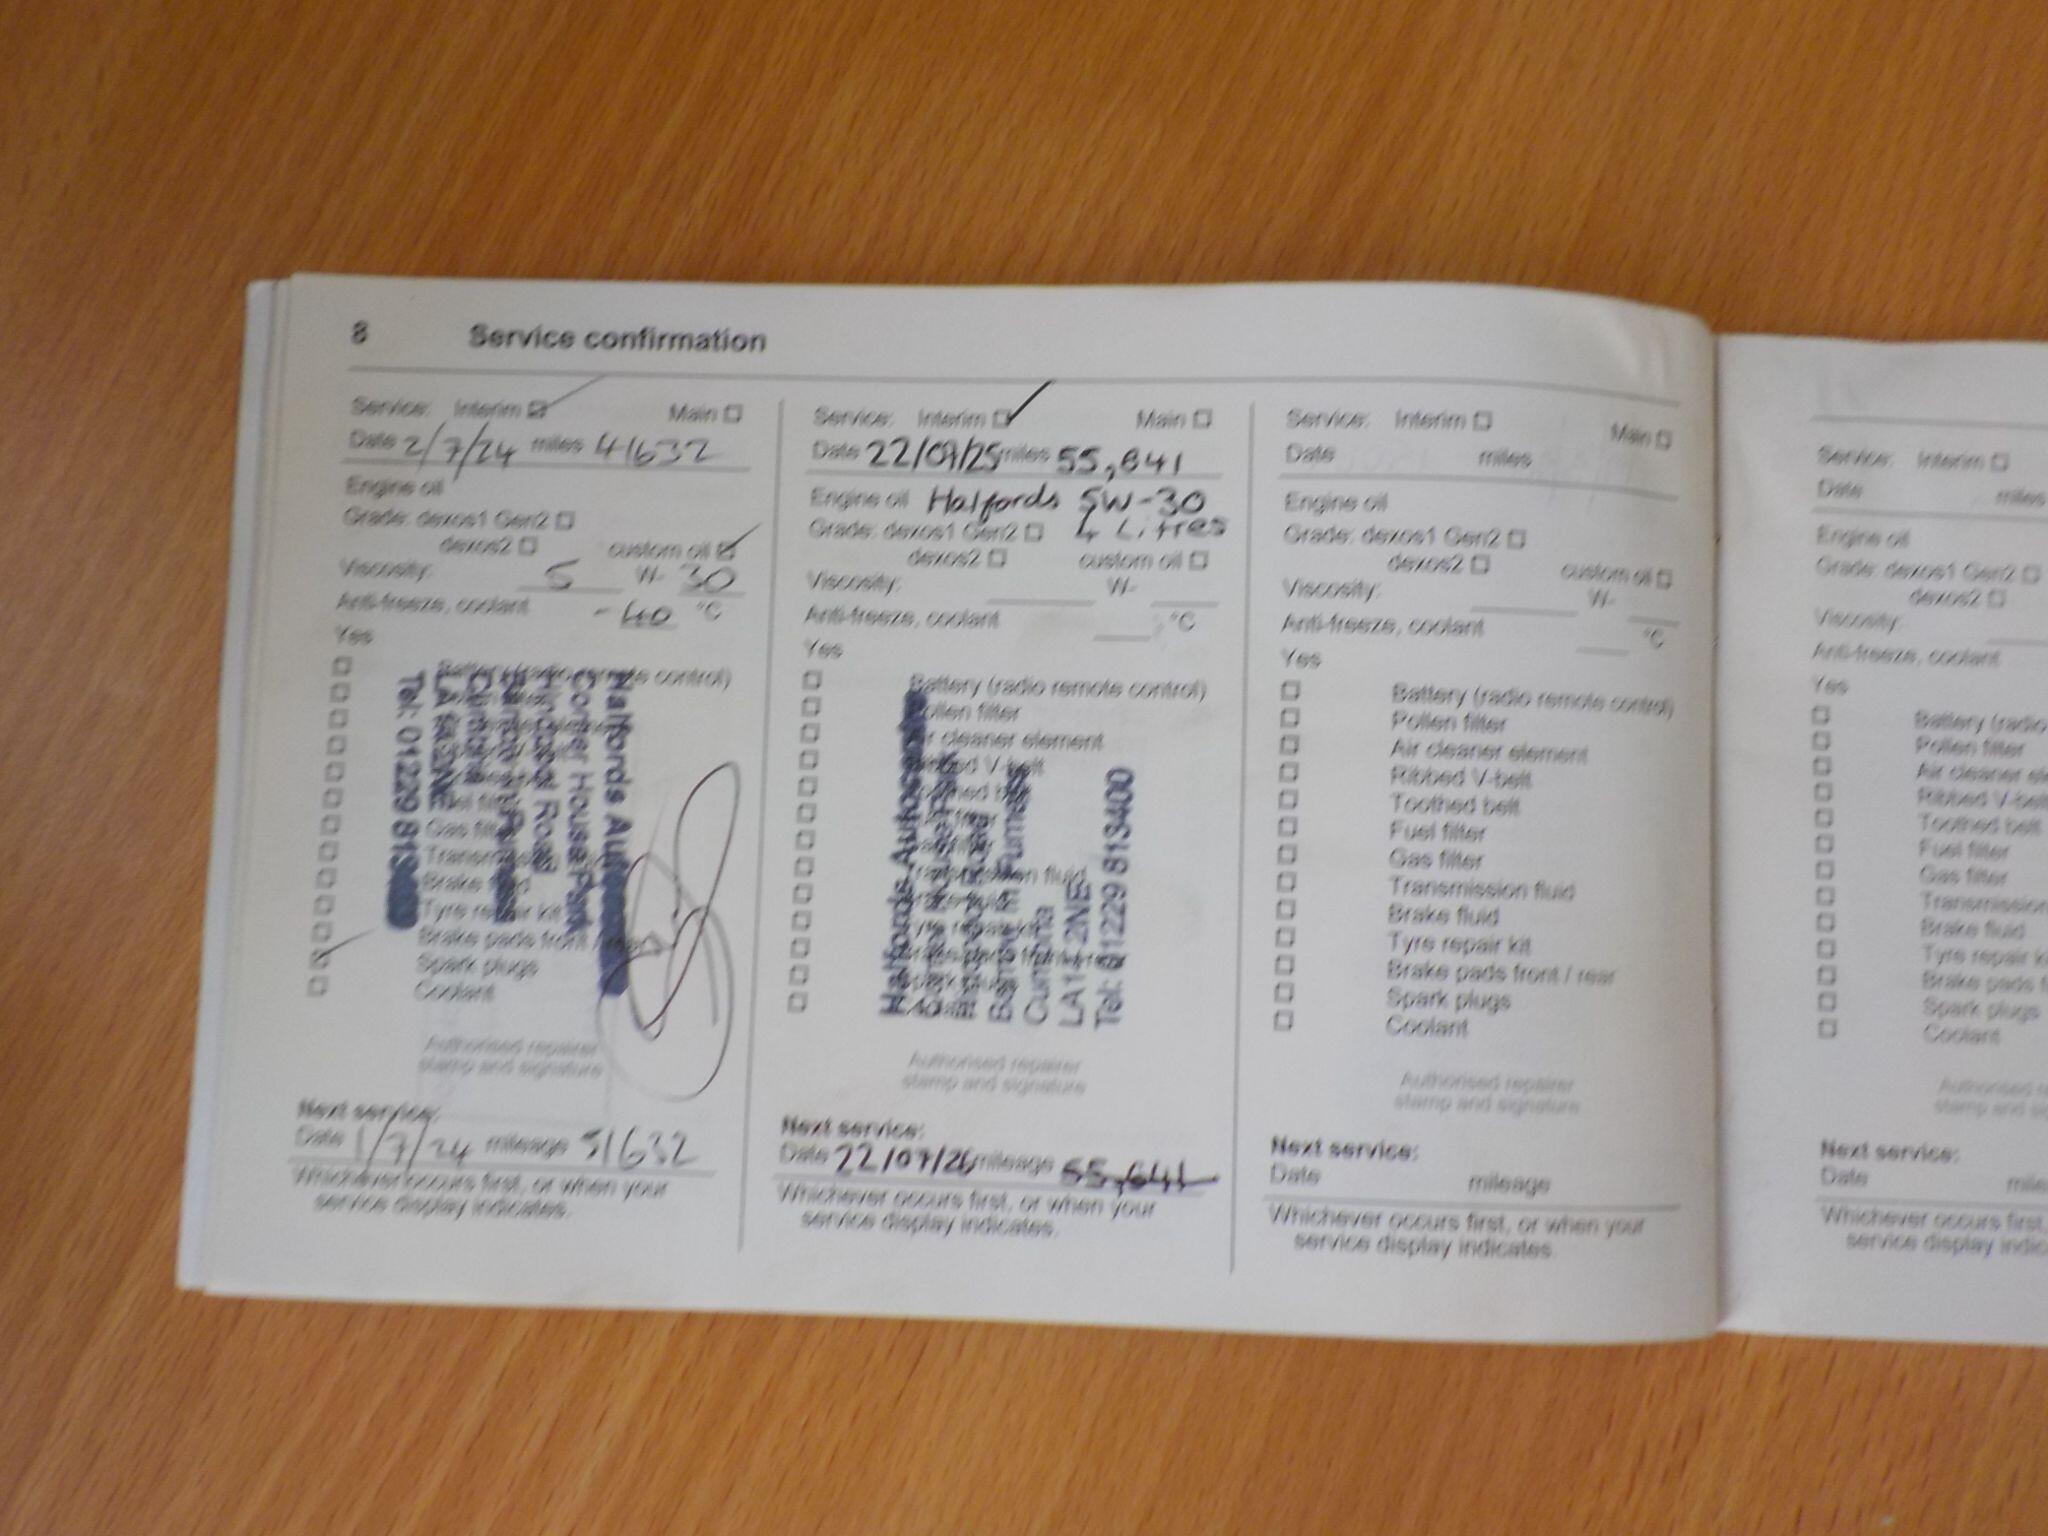 8 Service confirmation
Service: Interim Main
Date 2/7/24 miles 41632
Engine oil
Grade: dexos1 Gen2
dexos2 custom oil
Viscosity: 5 W- 30
Anti-freeze, coolant -40 °C
Yes
Battery (radio remote control)
Gas filter
Transmission
Brake fluid
Tyre repair kit
Brake pads front /
Spark plugs
Coolant
Halfords
Corner House Park
Road
Tel: 01229 813400
Authorised repairer
stamp and signature
Next service:
Date 1/7/24 mileage 51632
Whichever occurs first, or when your
service display indicates.
Service: Interim Main
Date 22/07/25 miles 55,841
Engine oil Halfords 5W-30
Grade: dexos1 Gen2 4 Litres
dexos2 custom oil
Viscosity: W-
Anti-freeze, coolant °C
Yes
Battery (radio remote control)
Pollen filter
Air cleaner element
Ribbed V-belt
Halfords
Cumbria
LA14 2NE
Tel: 01229 813400
Authorised repairer
stamp and signature
Next service:
Date 22/07/26 mileage 65,641
Whichever occurs first, or when your
service display indicates.
Service: Interim Main
Date miles
Engine oil
Grade: dexos1 Gen2
dexos2 custom oil
Viscosity: W-
Anti-freeze, coolant °C
Yes
Battery (radio remote control)
Pollen filter
Air cleaner element
Ribbed V-belt
Toothed belt
Fuel filter
Gas filter
Transmission fluid
Brake fluid
Tyre repair kit
Brake pads front / rear
Spark plugs
Coolant
Authorised repairer
stamp and signature
Next service:
Date mileage
Whichever occurs first, or when your
service display indicates.
Service: Interim
Date miles
Engine oil
Grade: dexos1 Gen2
dexos2
Viscosity:
Anti-freeze, coolant
Yes
Battery (radio
Pollen filter
Air cleaner ele
Ribbed V-belt
Toothed belt
Fuel filter
Gas filter
Transmission
Brake fluid
Tyre repair ki
Brake pads f
Spark plugs
Coolant
Authorised
stamp and
Next service:
Date mile
Whichever occurs first,
service display indic